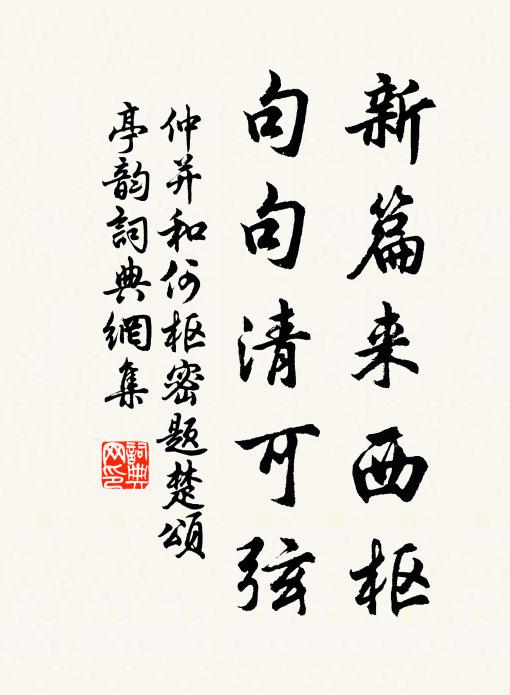 新篇来西枢
句句清可弦
仲并和何枢密题楚颂
亭韵詞典網集
詞典
网印